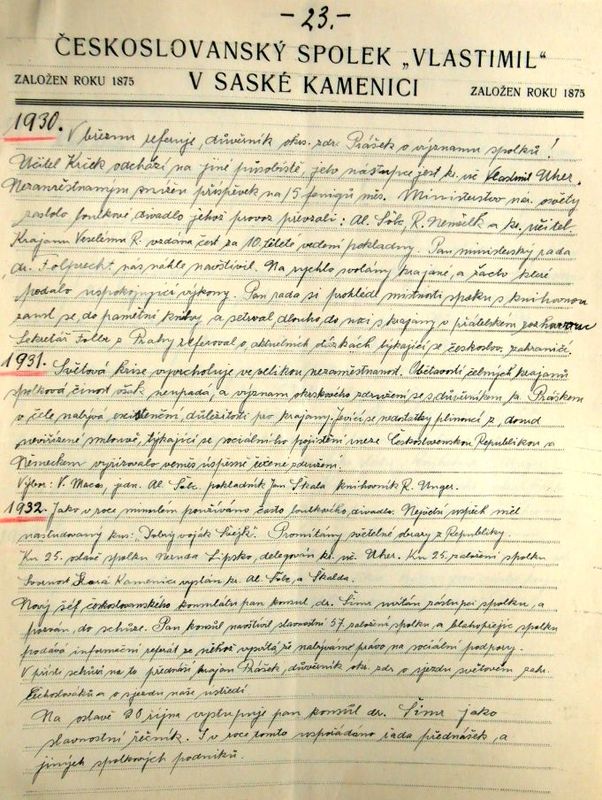 -23.-
ČESKOSLOVANSKÝ SPOLEK „VLASTIMIL"
ZALOŽEN ROKU 1875 V SASKÉ KAMENICI ZALOŽEN ROKU 1875
1930. V březnu referuje, důvěrník okr. zdr. Prášek o významu spolků!
Učitel Krček odchází na jiné působiště, jeho nástupce jest kr. uč. Vlastmil Uher.
Nezaměstnaným snížen příspěvek na 15 fenigů měs. Ministerstvo nár. osvěty
zaslalo loutkové divadlo jehož provoz převzali: Al. Šólc, R. Neměček a kr. učitel
Krajanu Veselému R. vzdána čest za 10.tiletо vedení pokladny. Pan ministerský rada
dr. Folprecht nás náhle navštívil. Na rychlo svolány krajané, a žactvo které
podalo uspokojující výkony. Pan rada si prohlédl místnosti spolku s knihovnou
zapsal se do pamětní knihy a setrval dlouho do noci s krajany v přátelském rozhovoru
Sekretář Folber z Prahy referoval o aktuelních otázkách týkající se českoslov. zahraničí.
1931. Světová krise vyvrcholuje ve velikou nezaměstnanost. Obětavostí čelných krajanů
spolková činost však neupadá, a význam okrskového združení se s důvěrníkem kr. Práškem
v čele nabývá existenční důležitosti pro krajany. Jevící se nedostatky plinoucí z, dosud
nevyřízené smlouvě, týkající se sociálního pojištění meze Československou Republikou a
Německem vyřizovalo vesměs úspěšně řečené združení.
Výbor: V. Maces, jedn. Al. Šólc. pokladník Jan Škala knihovník R. Unger.
1932. Jako v roce minulém používáno často loutkového divadla. Největší úspěch měl
nastudovaný kus: Dobrý voják Švejk. Promítány světelné obrazy z Republiky.
Ku 25. oslavě spolku Neruda Lipsko, delegován kr. uč. Uher. Ku 25. založení spolku
Svornost Stará Kamenice vyslán kr. Al. Šólc, a Škalda.
Nový šéf českoslovanského konsulátu pan konsul dr. Šimr uvítán zástupci spolku, a
pozván, do schůze. Pan konsul navštívil slavnostní 57. založení spolku, a blahopřejíc spolku
podává informační referát ze něhož vysvítá že nabýváme právo na sociální podpory.
V příští schůzi na to přednáší krajan Prášek, důvěrník okr. zdr. o sjezdu světovém zahr.
Čechoslováků a o sjezdu naše ústředí
Na oslavě 30 října vystupuje pan konsul dr. Šimr jako
slavnostní řečník. I v roce tomto uspořádáno řada přednášek, a
jiných spolkových podniků.